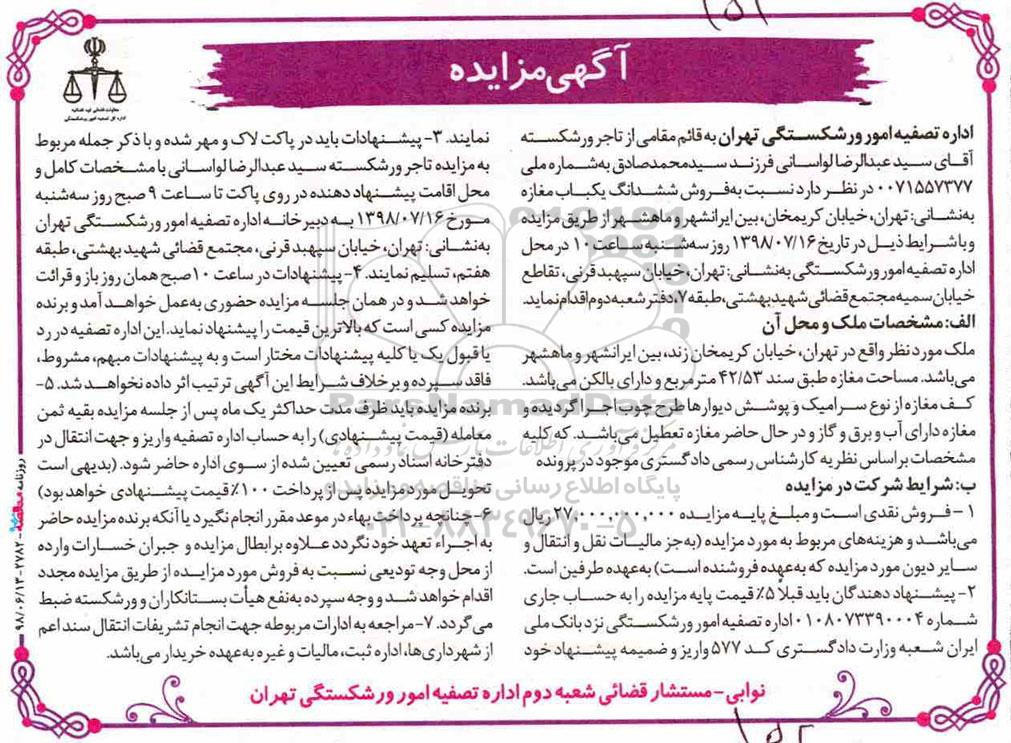 آگهی مزایده
معاونت قضائی قوه قضائیه
اداره کل تصفیه امور ورشکستگی
اداره تصفیه امور ورشکستگی تهران به قائم مقامی از تاجر ورشکسته
آقای سید عبدالرضا لواسانی فرزند سیدمحمدصادق به‌شماره ملی
۰۰۷۱۵۵۷۳۷۷ در نظر دارد نسبت به‌فروش ششدانگ یکباب مغازه
به‌نشانی: تهران، خیابان کریمخان، بین ایرانشهر و ماهشهر از طریق مزایده
و با شرایط ذیل در تاریخ ۱۳۹۸/۰۷/۱۶ روز سه‌شنبه ساعت ۱۰ در محل
اداره تصفیه امور ورشکستگی به‌نشانی: تهران، خیابان سپهبد قرنی، تقاطع
خیابان سمیه مجتمع قضائی شهید بهشتی، طبقه ۷، دفتر شعبه دوم اقدام نماید.
الف: مشخصات ملک و محل آن
ملک مورد نظر واقع در تهران، خیابان کریمخان زند، بین ایرانشهر و ماهشهر
می‌باشد. مساحت مغازه طبق سند ۴۲/۵۳ مترمربع و دارای بالکن می‌باشد.
کف مغازه از نوع سرامیک و پوشش دیوارها طرح چوب اجرا گردیده و
مغازه دارای آب و برق و گاز و در حال حاضر مغازه تعطیل می‌باشد. که کلیه
مشخصات براساس نظریه کارشناس رسمی دادگستری موجود در پرونده
ب: شرایط شرکت در مزایده
۱- فروش نقدی است و مبلغ پایه مزایده ۲۷,۰۰۰,۰۰۰,۰۰۰ ریال
می‌باشد و هزینه‌های مربوط به مورد مزایده (به‌جز مالیات نقل و انتقال و
سایر دیون مورد مزایده که به‌عهده فروشنده است) به‌عهده طرفین است.
۲- پیشنهاد دهندگان باید قبلاً ۵٪ قیمت پایه مزایده را به حساب جاری
شماره ۰۱۰۸۰۷۳۳۹۰۰۰۴ اداره تصفیه امور ورشکستگی نزد بانک ملی
ایران شعبه وزارت دادگستری کد ۵۷۷ واریز و ضمیمه پیشنهاد خود
نمایند. ۳- پیشنهادات باید در پاکت لاک و مهر شده و با ذکر جمله مربوط
به مزایده تاجر ورشکسته سید عبدالرضا لواسانی با مشخصات کامل و
محل اقامت پیشنهاد دهنده در روی پاکت تا ساعت ۹ صبح روز سه‌شنبه
مورخ ۱۳۹۸/۰۷/۱۶ به دبیرخانه اداره تصفیه امور ورشکستگی تهران
به‌نشانی: تهران، خیابان سپهبد قرنی، مجتمع قضائی شهید بهشتی، طبقه
هفتم، تسلیم نمایند. ۴- پیشنهادات در ساعت ۱۰ صبح همان روز باز و قرائت
خواهد شد و در همان جلسه مزایده حضوری به‌عمل خواهد آمد و برنده
مزایده کسی است که بالاترین قیمت را پیشنهاد نماید. این اداره تصفیه در رد
یا قبول یک یا کلیه پیشنهادات مختار است و به پیشنهادات مبهم، مشروط،
فاقد سپرده و برخلاف شرایط این آگهی ترتیب اثر داده نخواهد شد. ۵-
برنده مزایده باید ظرف مدت حداکثر یک ماه پس از جلسه مزایده بقیه ثمن
معامله (قیمت پیشنهادی) را به حساب اداره تصفیه واریز و جهت انتقال در
دفترخانه اسناد رسمی تعیین شده از سوی اداره حاضر شود. (بدیهی است
تحویل مورد مزایده پس از پرداخت ۱۰۰٪ قیمت پیشنهادی خواهد بود)
۶- چنانچه پرداخت بهاء در موعد مقرر انجام نگیرد یا آنکه برنده مزایده حاضر
به اجراء تعهد خود نگردد علاوه برابطال مزایده و جبران خسارات وارده
از محل وجه تودیعی نسبت به فروش مورد مزایده از طریق مزایده مجدد
اقدام خواهد شد و وجه سپرده به‌نفع هیأت بستانکاران و ورشکسته ضبط
می گردد. ۷- مراجعه به ادارات مربوطه جهت انجام تشریفات انتقال سند اعم
از شهرداری‌ها، اداره ثبت، مالیات و غیره به‌عهده خریدار می‌باشد.
نوابی- مستشار قضائی شعبه دوم اداره تصفیه امور ورشکستگی تهران
روزنامه - ۲۷۸۲ - ۹۸/۰۶/۱۳
ParsNamadData
پایگاه اطلاع رسانی مناقصه و مزایده
۰۲۱-۸۸۳۴۹۶۷۰-۵